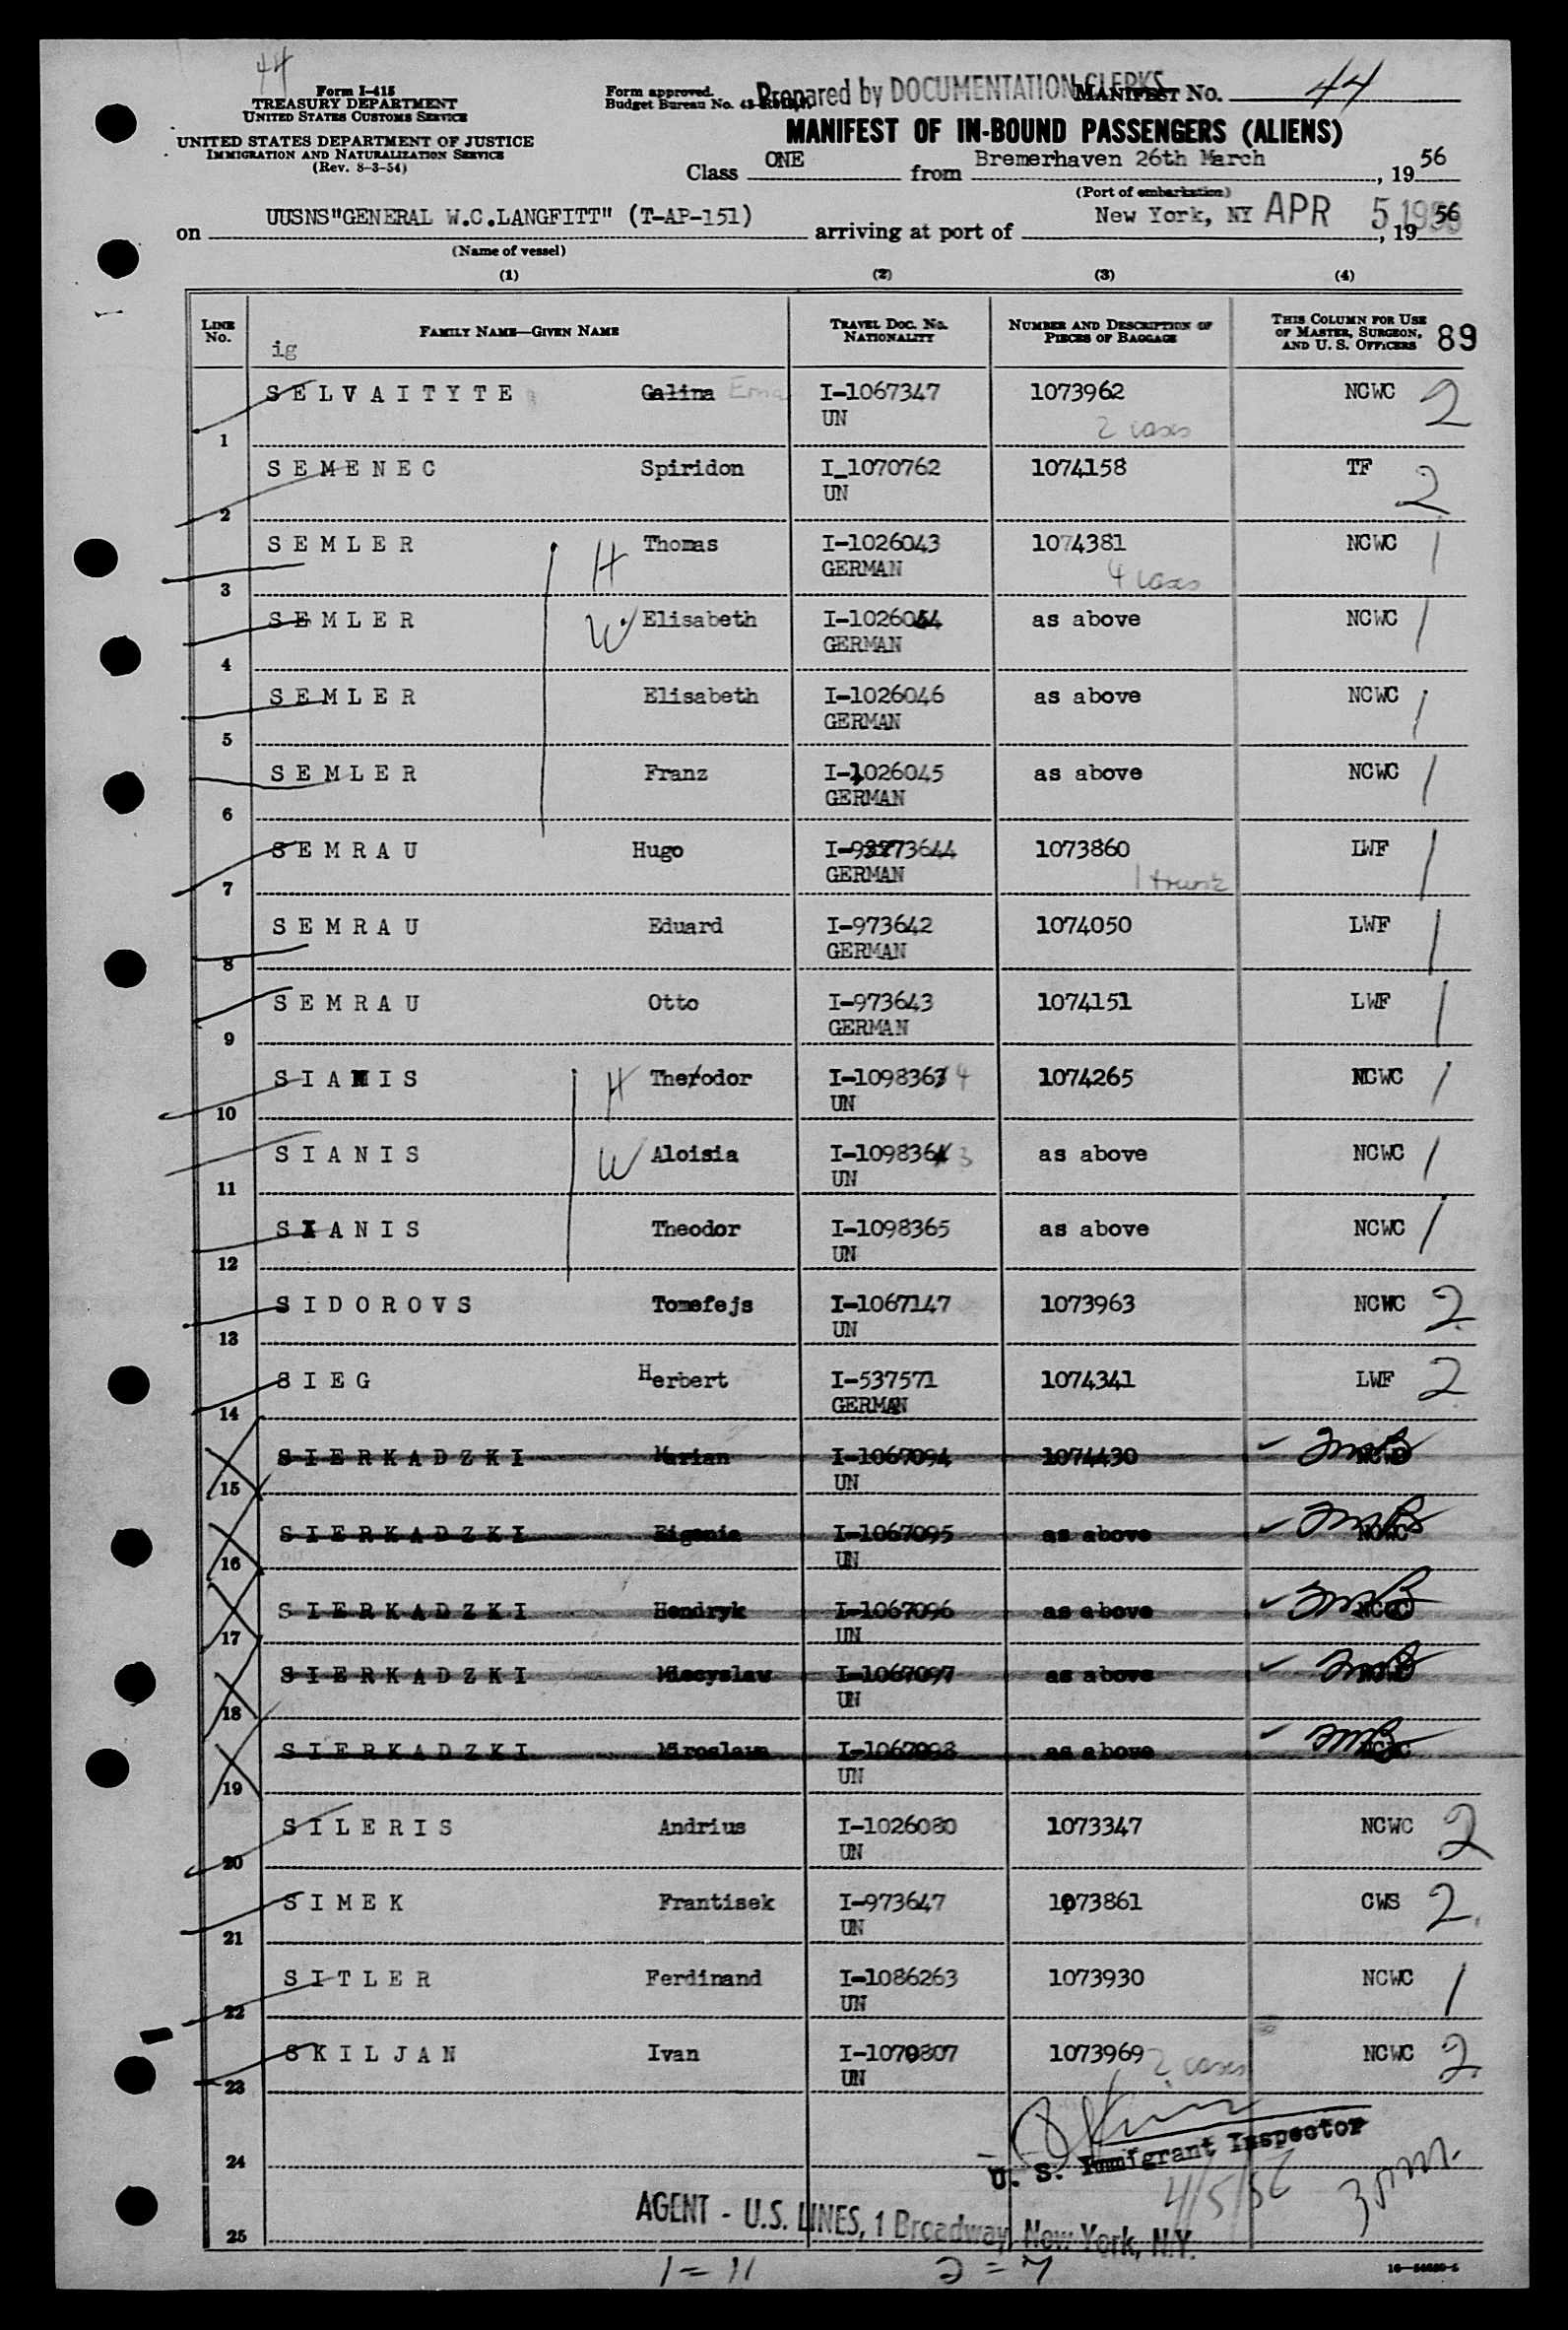 44
Form I-415
TREASURY DEPARTMENT
UNITED STATES CUSTOMS SERVICE
UNITED STATES DEPARTMENT OF JUSTICE
IMMIGRATION AND NATURALIZATION SERVICE
(Rev. 8-3-54)
Form approved.
Budget Bureau No.
Prepared by DOCUMENTATION CLERKS
MANIFEST No. 44
MANIFEST OF IN-BOUND PASSENGERS (ALIENS)
Class ONE from Bremerhaven 26th March, 1956
(Port of embarkation)
on UUSNS"GENERAL W.C.LANGFITT" (T-AP-151) arriving at port of New York, NY APR 5, 1956
(Name of vessel)
(1) (2) (3) (4)
LINE No. FAMILY NAME—GIVEN NAME TRAVEL DOC. No. NATIONALITY NUMBER AND DESCRIPTION OF PIECES OF BAGGAGE THIS COLUMN FOR USE OF MASTER, SURGEON, AND U. S. OFFICERS 89
ig
1 SELVAITYTE Galina Erna I-1067347 1073962 NCWC 2
UN 2 cases
2 SEMENEC Spiridon I_1070762 1074158 TF 2
UN
3 SEMLER H Thomas I-1026043 1074381 NCWC 1
GERMAN 4 cases
4 SEMLER W Elisabeth I-1026044 as above NCWC 1
GERMAN
5 SEMLER Elisabeth I-1026046 as above NCWC 1
GERMAN
6 SEMLER Franz I-1026045 as above NCWC 1
GERMAN
7 SEMRAU Hugo 1073860 LWF 1
GERMAN 1 trunk
8 SEMRAU Eduard I-973642 1074050 LWF 1
GERMAN
9 SEMRAU Otto I-973643 1074151 LWF 1
GERMAN
10 SIANIS H Therodor I-10983634 1074265 NCWC 1
UN
11 SIANIS W Aloisia I-10983643 as above NCWC 1
UN
12 SIANIS Theodor I-1098365 as above NCWC 1
UN
13 SIDOROVS Tomefejs I-1067147 1073963 NCWC 2
UN
14 SIEG Herbert I-537571 1074341 LWF 2
GERMAN
15 SIERKADZKI Marian I-1067094 1074430
UN
16 SIERKADZKI Eigenie I-1067095 as above NCWC
UN
17 SIERKADZKI Hendryk I-1067096 as above NCWC
UN
18 SIERKADZKI Miecyslaw I-1067097 as above
UN
19 SIERKADZKI Miroslawa I-1067098 as above NCWC
UN
20 SILERIS Andrius I-1026080 1073347 NCWC 2
UN
21 SIMEK Frantisek I-973647 1073861 CWS 2
UN
22 SITLER Ferdinand I-1086263 1073930 NCWC 1
UN
23 SKILJAN Ivan I-1070807 1073969 2 cases NCWC 2
UN
24
U. S. Immigrant Inspector
4/5/56 3 pm.
AGENT - U.S. LINES, 1 Broadway, New York, N.Y.
25
1 = 11 2 = 7